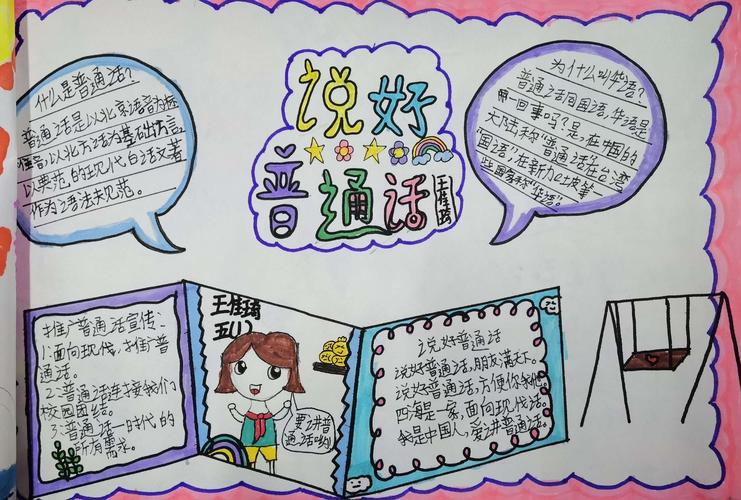 什么是普通话?
普通话是以北京语音为标
准音,以北方话为基础方言,
以典范的现代白话文著
作为语法规范。
说好
普通话
王佳琦
为什么叫华语?
普通话同国语,华语是
一回事吗?是,在中国的
大陆称"普通话"在台湾
"国语",在新加坡等
些国家称"华语"。
推广普通话宣传:
1.面向现代,推广普
通话。
2.普通话连接我们
校园团结。
3.普通话一时代的
所有需求。
王佳琦
五(1)
要讲普
通话哟
说好普通话
说好普通话,朋友满天下。
说好普通话,方便你我他。
四海是一家,面向现代话。
我是中国人,爱讲普通话。